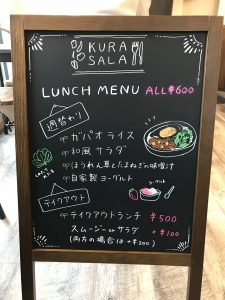 KURA
SALA
LUNCH MENU ALL¥600
週替わり
ガパオライス
和風サラダ
ほうれん草とたまねぎの味噌汁
自家製ヨーグルト
テイクアウト
テイクアウトランチ ¥500
スムージーorサラダ +¥100
(両方の場合は+¥200)